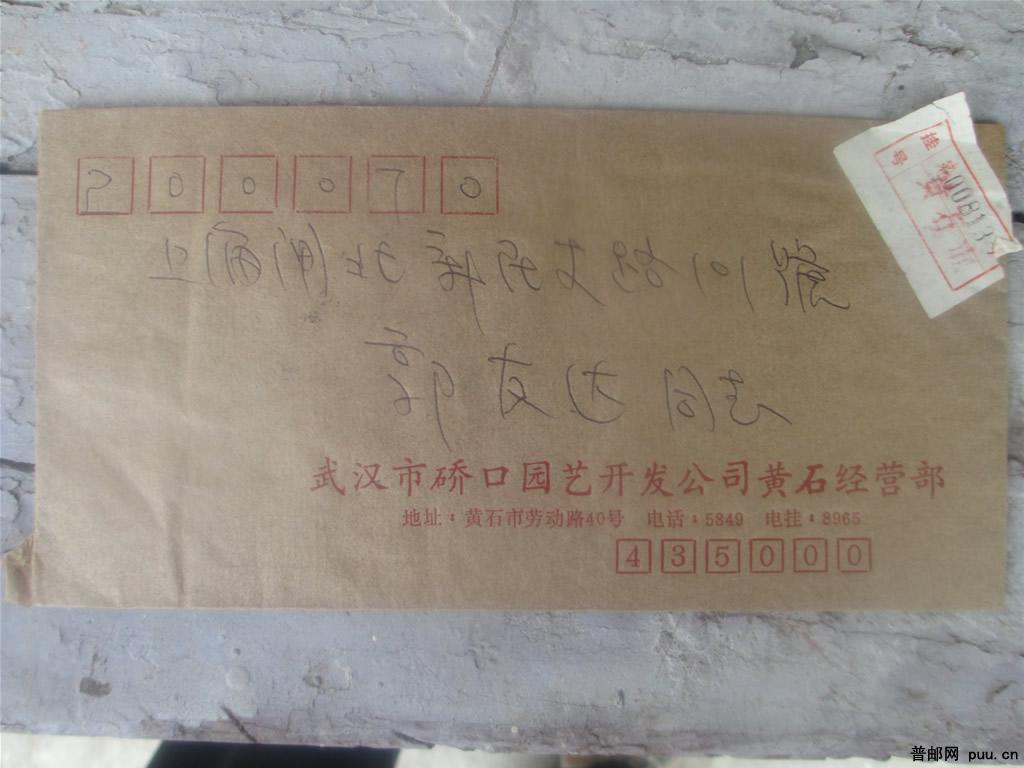 200070
上海闸北新民支路101號
郭友达同志
武汉市硚口园艺开发公司黄石经营部
地址：黄石市劳动路40号 电话：5849 电挂：8965
435000
挂号
黄石
普邮网 puu.cn